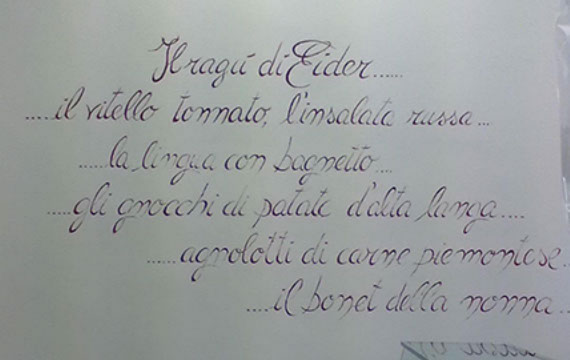 Il ragú di Eider......
....il vitello tonnato, l'insalata russa...
.....la lingua con bagnetto...
.....gli gnocchi di patate d'alta langa....
......agnolotti di carne piemontese.
....il bonet della nonna..